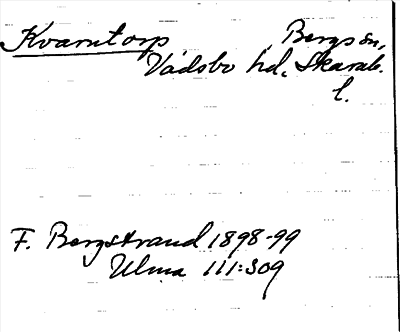 Kvarntorp Bergs sn,
Vadsbo hd, Skarab.
l.
F. Bergstrand 1898-99
Ulma 111:309